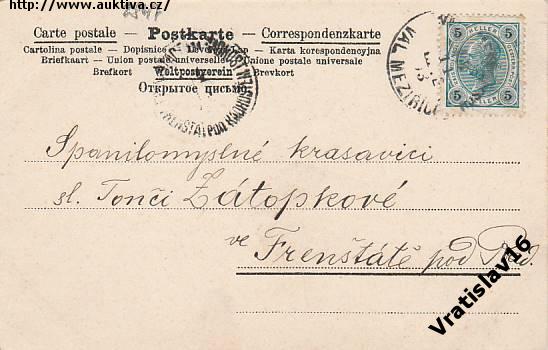 http://www.auktiva.cz/
Carte postale — Postkarte — Correspondenzkarte
Cartolina postale — Dopisnice — Levelezőlap — Karta korespondencyjna
Briefkaart — Union postale universelle — Unione postale universale
Brefkort — Weltpostverein — Brevkort
Открытое письмо.
5 HELLER 5
VAL. MEZIŘIČÍ
FRENŠTÁT POD RADHOŠTĚM
5 5
Spanilomyslné krasavici
sl. Tonči Zátopkové
ve Frenštátě pod Rad.
Vratislav16